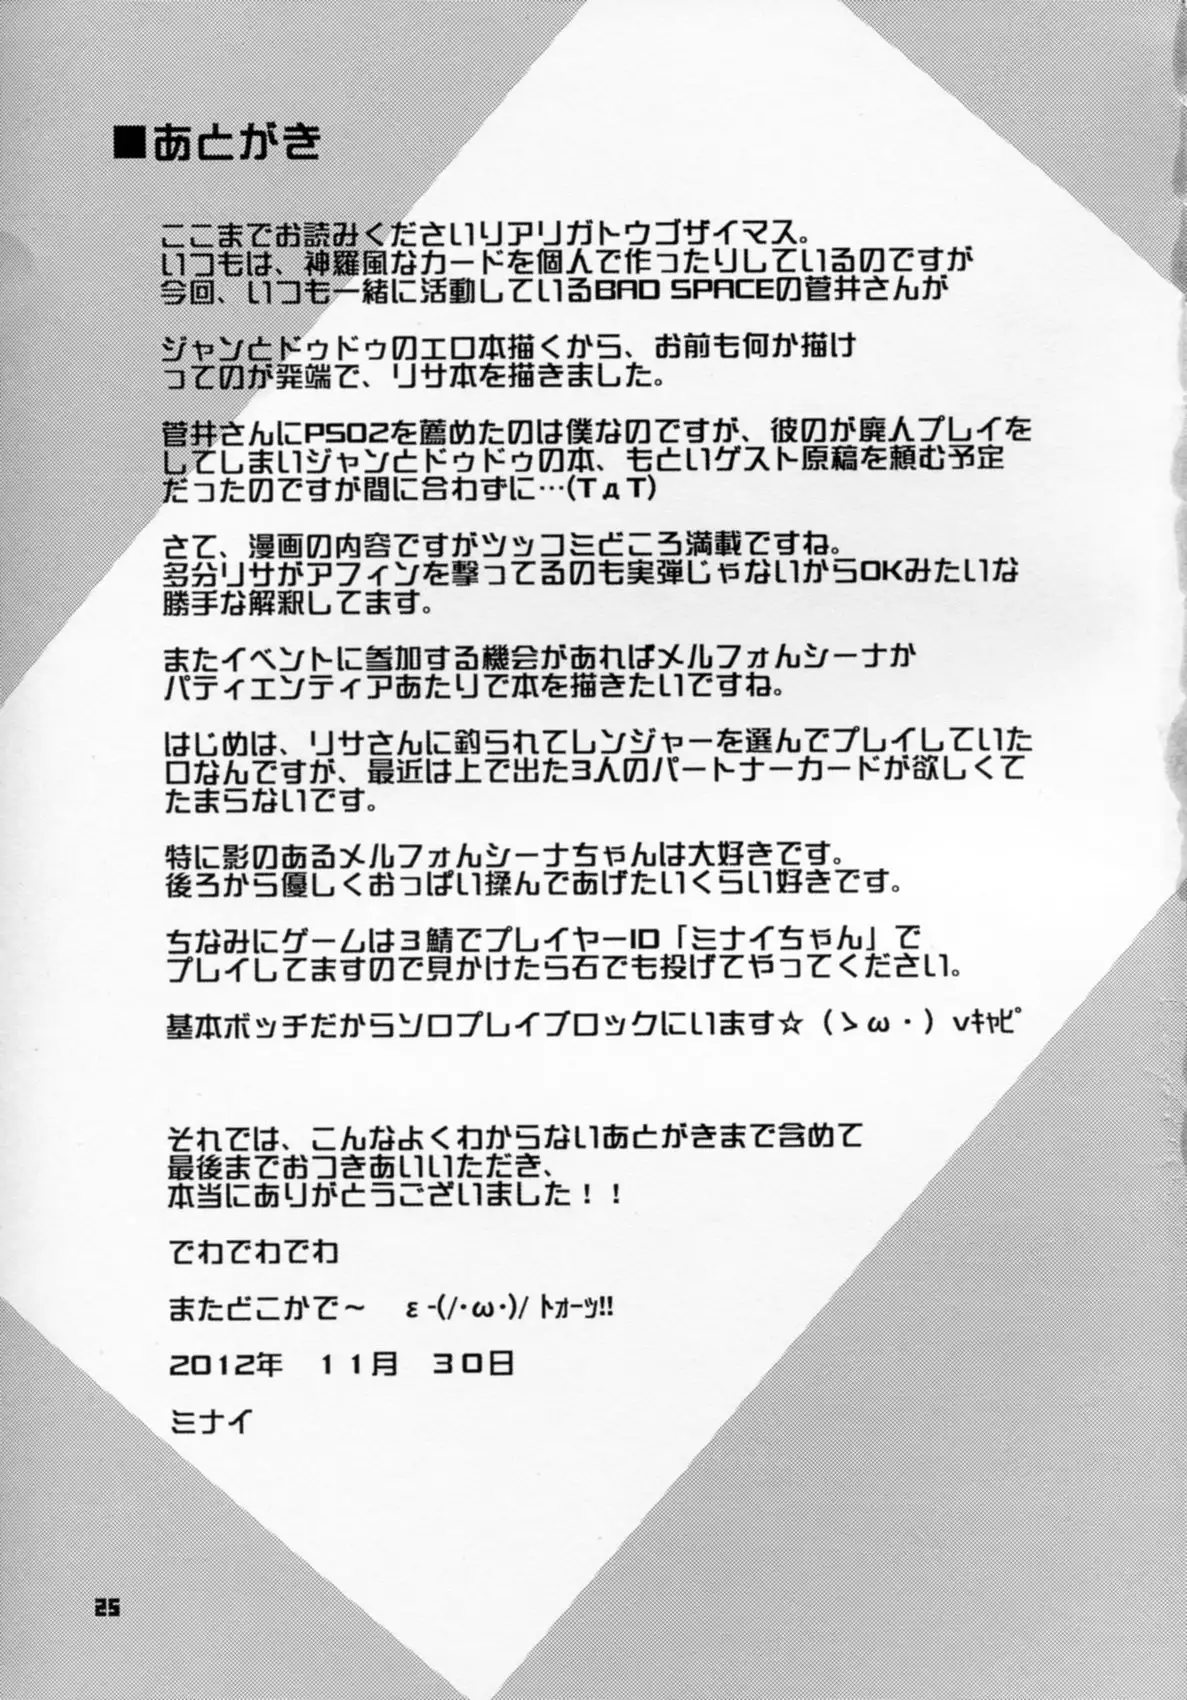 ■あとがき
ここまでお読みくださいりアリガトウゴザイマス。
いつもは、神羅風なカードを個人で作ったりしているのですが
今回、いつも一緒に活動しているBAD SPACEの菅井さんが
ジャンとドゥドゥのエロ本描くから、お前も何か描け
ってのが発端で、リサ本を描きました。
菅井さんにPSO2を薦めたのは僕なのですが、彼のが廃人プレイを
してしまいジャンとドゥドゥの本、もといゲスト原稿を頼む予定
だったのですが間に合わずに…(TдT)
さて、漫画の内容ですがツッコミどころ満載ですね。
多分リサがアフィンを撃ってるのも実弾じゃないからOKみたいな
勝手な解釈してます。
またイベントに参加する機会があればメルフォんシーナか
パティエンティアあたりで本を描きたいですね。
はじめは、リサさんに釣られてレンジャーを選んでプレイしていた
口なんですが、最近は上で出た3人のパートナーカードが欲しくて
たまらないです。
特に影のあるメルフォんシーナちゃんは大好きです。
後ろから優しくおっぱい揉んであげたいくらい好きです。
ちなみにゲームは3鯖でプレイヤーID「ミナイちゃん」で
プレイしてますので見かけたら石でも投げてやってください。
基本ボッチだからソロプレイブロックにいます☆（ゝω・）vｷｬﾋﾟ
それでは、こんなよくわからないあとがきまで含めて
最後までおつきあいいただき、
本当にありがとうございました！！
でわでわでわ
またどこかで～　ε-(/･ω･)/ ﾄｫｰｯ!!
2012年　11月　30日
ミナイ
25